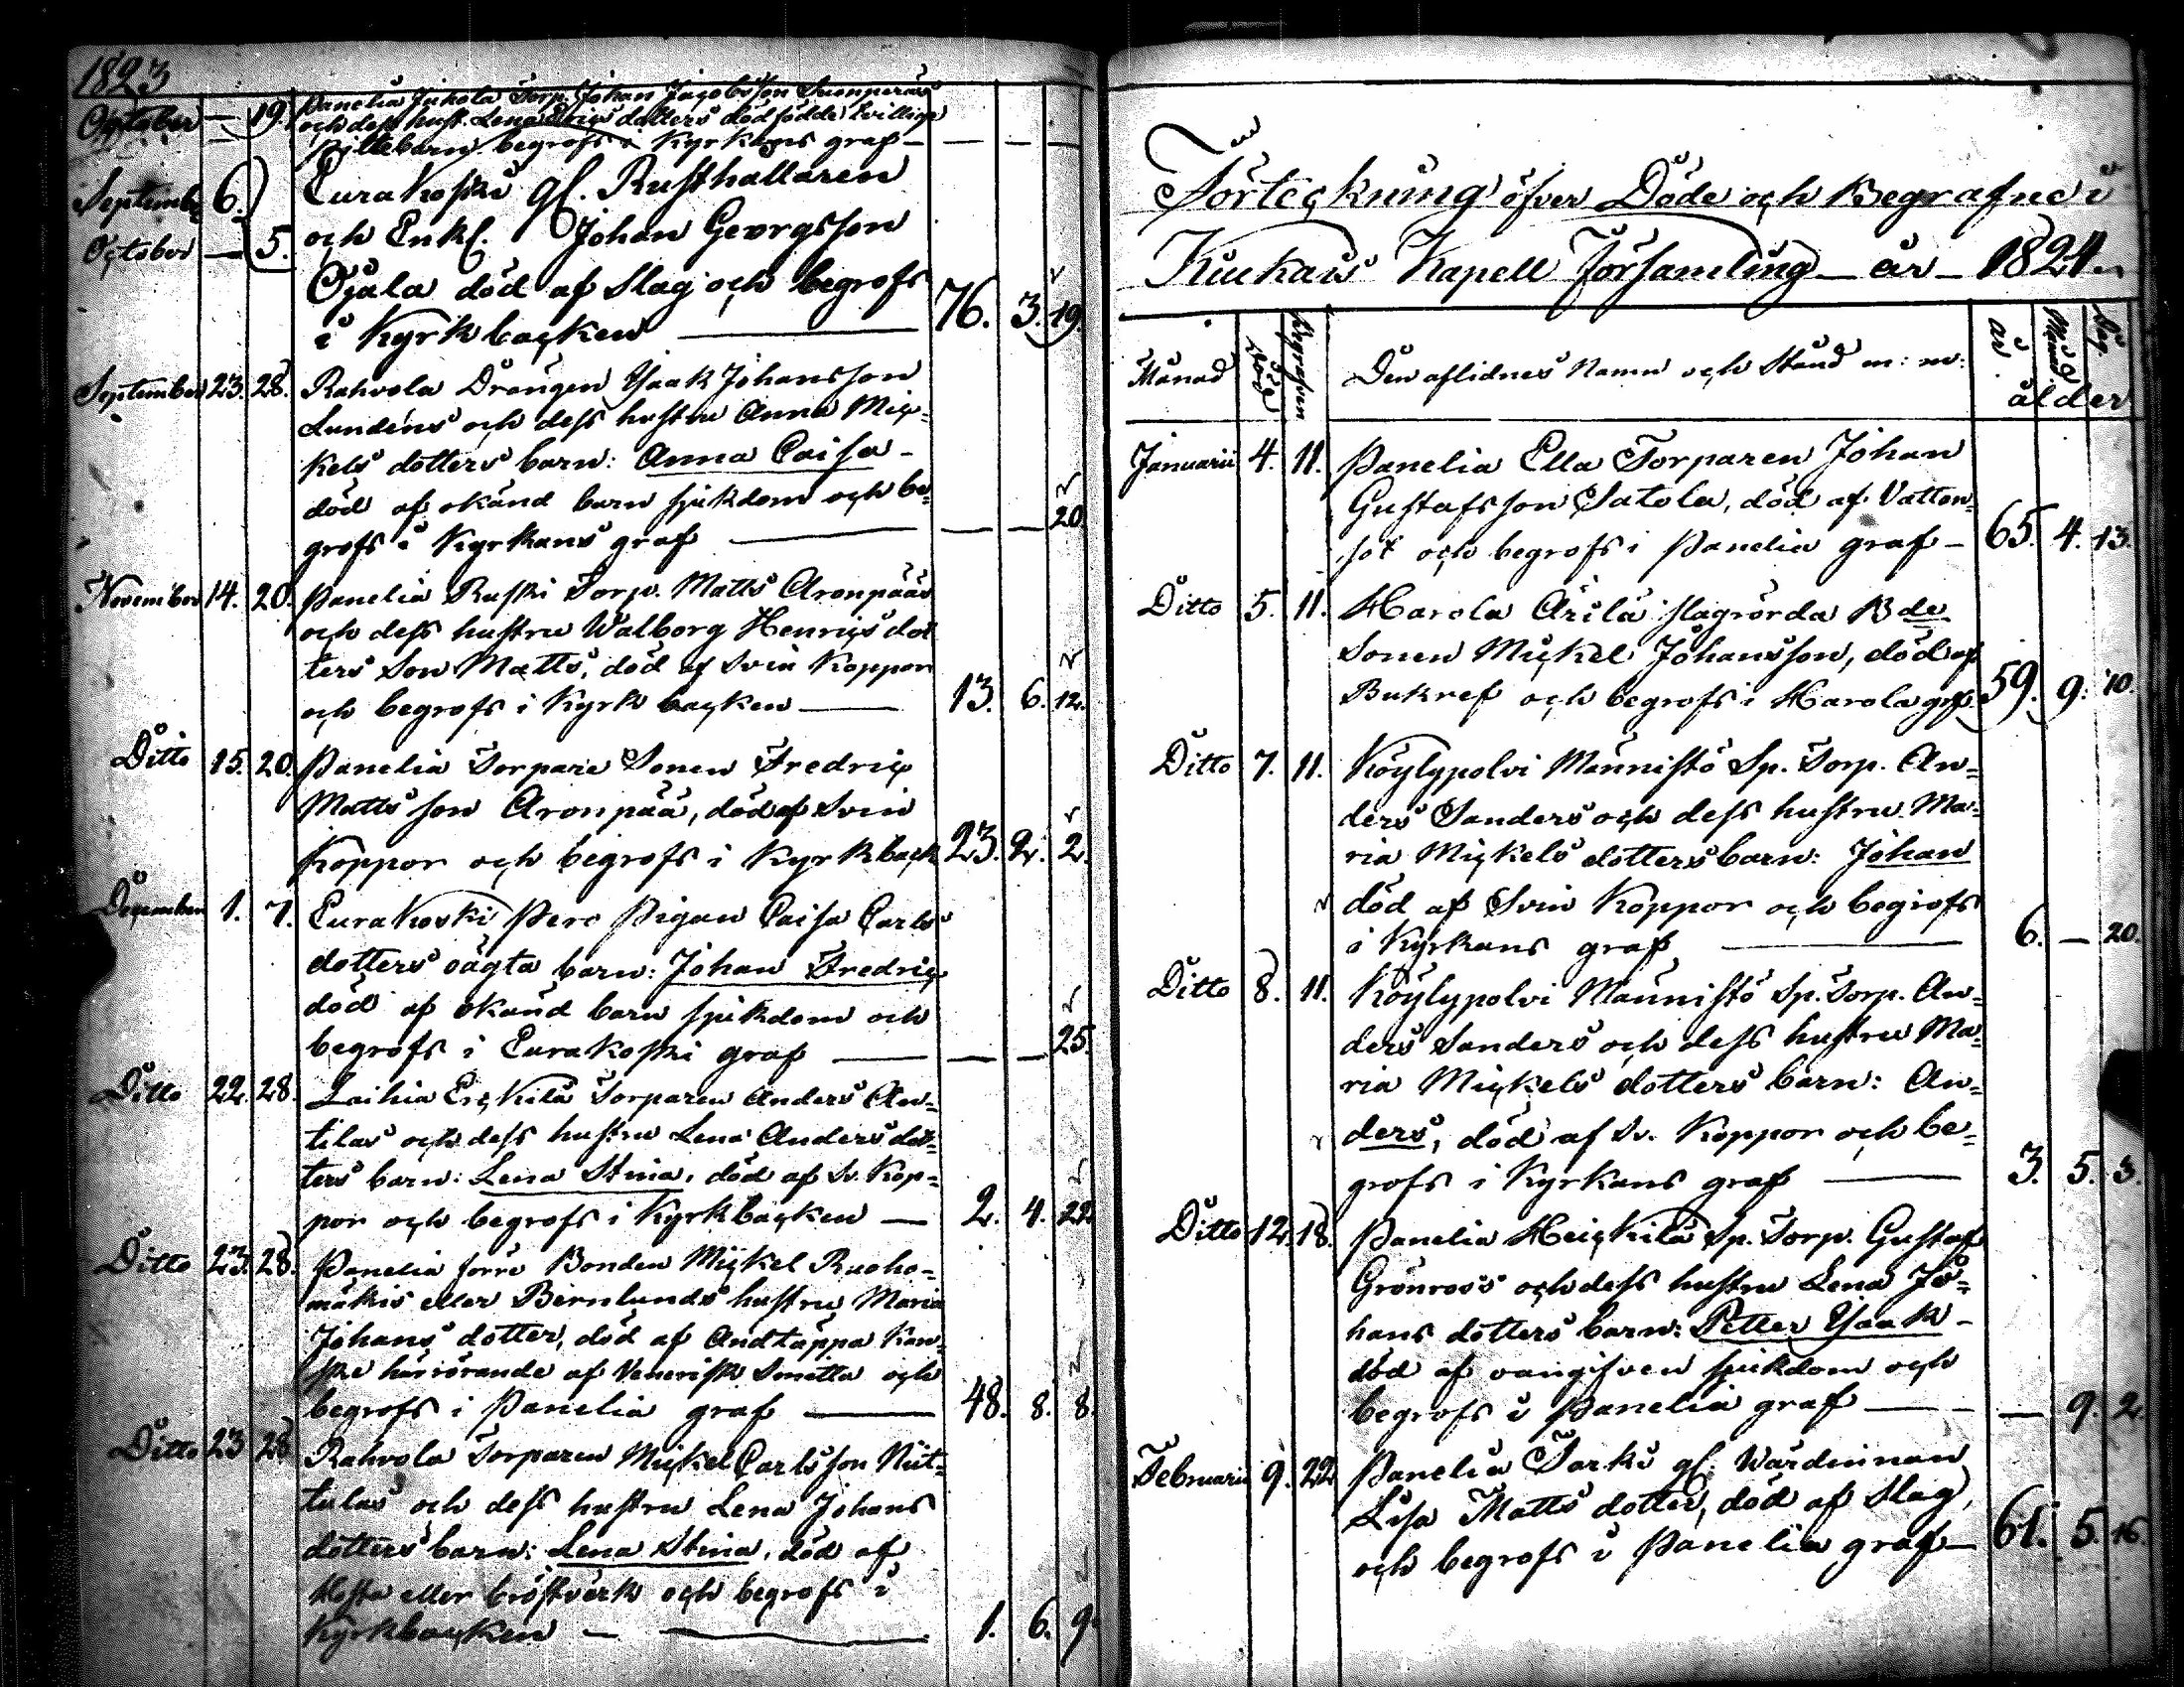 1823
October — 19. Panelia Juhola Torp. Johan Jacobsson
och dess hust. Lena dotters dödfödde tvillinge
barn begrofs i Kyrkans graf — — — —
Septembr 6. Eurakoski gl. Rusthållaren
October — 5. och Enkl. Johan Georgsson
Ojala död af slag och begrofs
i Kyrkbacken — 76. 3. 19.
September 23. 28. Rahvola Drängen Isaak Johansson
Lundens och dess hustru Anna Mic-
kels dotters barn: Anna Caisa -
död af okänd barn sjukdom och be-
grofs i Kyrkans graf — — — 20.
November 14. 20. Panelia Ruski Torp. Matts Aronpääs
och dess hustru Walborg Henrics dot
ters Son Matts, död af Svin Koppor
och begrofs i Kyrkbacken — 13. 6. 12.
Ditto 15. 20. Panelia Torpare Sonen Fredric
Matts son Aronpää, död af Svin
Koppor och begrofs i Kyrkback 23. 2. 2.
December 1. 7. Eurakoski Pere Pigan Caisa Carls
dotters oägta barn: Johan Fredric
död af okänd barn sjukdom och
begrofs i Eurakoski graf — — — 25.
Ditto 22. 28. Laihia Erckilä Torparen Anders An-
tilas och dess hustru Lena Anders dot-
ters barn: Lena Stina, död af Sv. Kop-
por och begrofs i Kyrkbacken — 2. 4. 22.
Ditto 23. 28. Panelia förre Bonden Mickel Ruoho-
mäkis eller Björnlunds hustru Maria
Johans dotter, död af Andtäppa Kan-
ske härrörande af Venerisk Smitta och
begrofs i Panelia graf — 48. 8. 8.
Ditto 23 28 Rahvola Torparen Mickel Carlsson Niit-
tulas och dess hustru Lena Johans
dotters barn: Lena Stina, död af
Hosta eller bröstvärk och begrofs i
Kyrkbacken — — 1. 6. 9.
Förteckning öfver Döde och Begrafne i
Kiukais Kapell Församling — år — 1824.
Månad Död Begrafven Den aflidnes Namn och Stånd m: m: år. Månad dag.
ålder
Januarii 4. 11. Panelia Ella Torparen Johan
Gustafsson Satola, död af Vatten-
sot och begrofs i Panelia graf — 65. 4. 13.
Ditto 5. 11. Harola Äärilä slagrörda Bde
Sonen Mickel Johansson, död af
Bukref och begrofs i Harola grf. 59. 9. 10.
Ditto 7. 11. Köylypolvi Männistö Sp. Torp. An-
ders Sanders och dess hustru Ma-
ria Mickels dotters barn: Johan
död af Svin Koppor och begrofs
i Kyrkans graf — 6. — 20.
Ditto 8. 11. Köylypolvi Männistö Sp. Torp. An-
ders Sanders och dess hustru Ma-
ria Mickels dotters barn: An-
ders, död af Sv. Koppor och be-
grofs i Kyrkans graf — 3. 5. 3.
Ditto 12. 18. Panelia Heickilä Sp. Torp. Gustaf
Grönroos och dess hustru Lena Jo-
hans dotters barn: Petter Isaak —
död af oangifven sjukdom och
begrofs i Panelia graf — — 9. 2.
Februarii 9. 22 Panelia Tarki gl. Wärdinnan
Lisa Matts dotter, död af slag,
och begrofs i Panelia graf — 61. 5. 16.